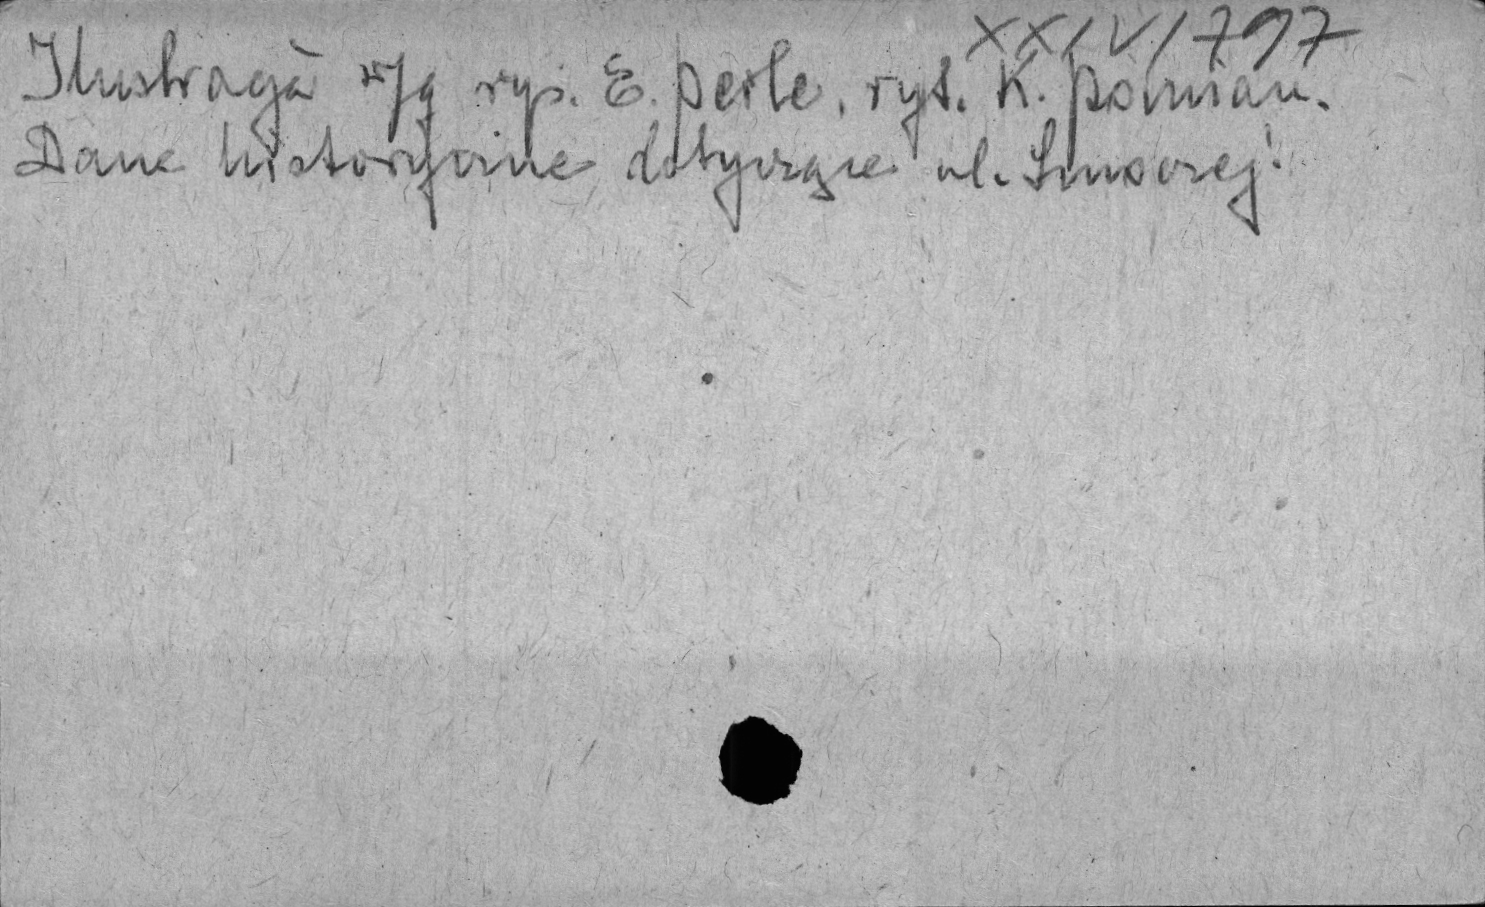 XXIV/797
Ilustracja w/g rys. E. Perle, ryt. K. Pomian.
Dane historyczne dotyczące ul. Smoczej.